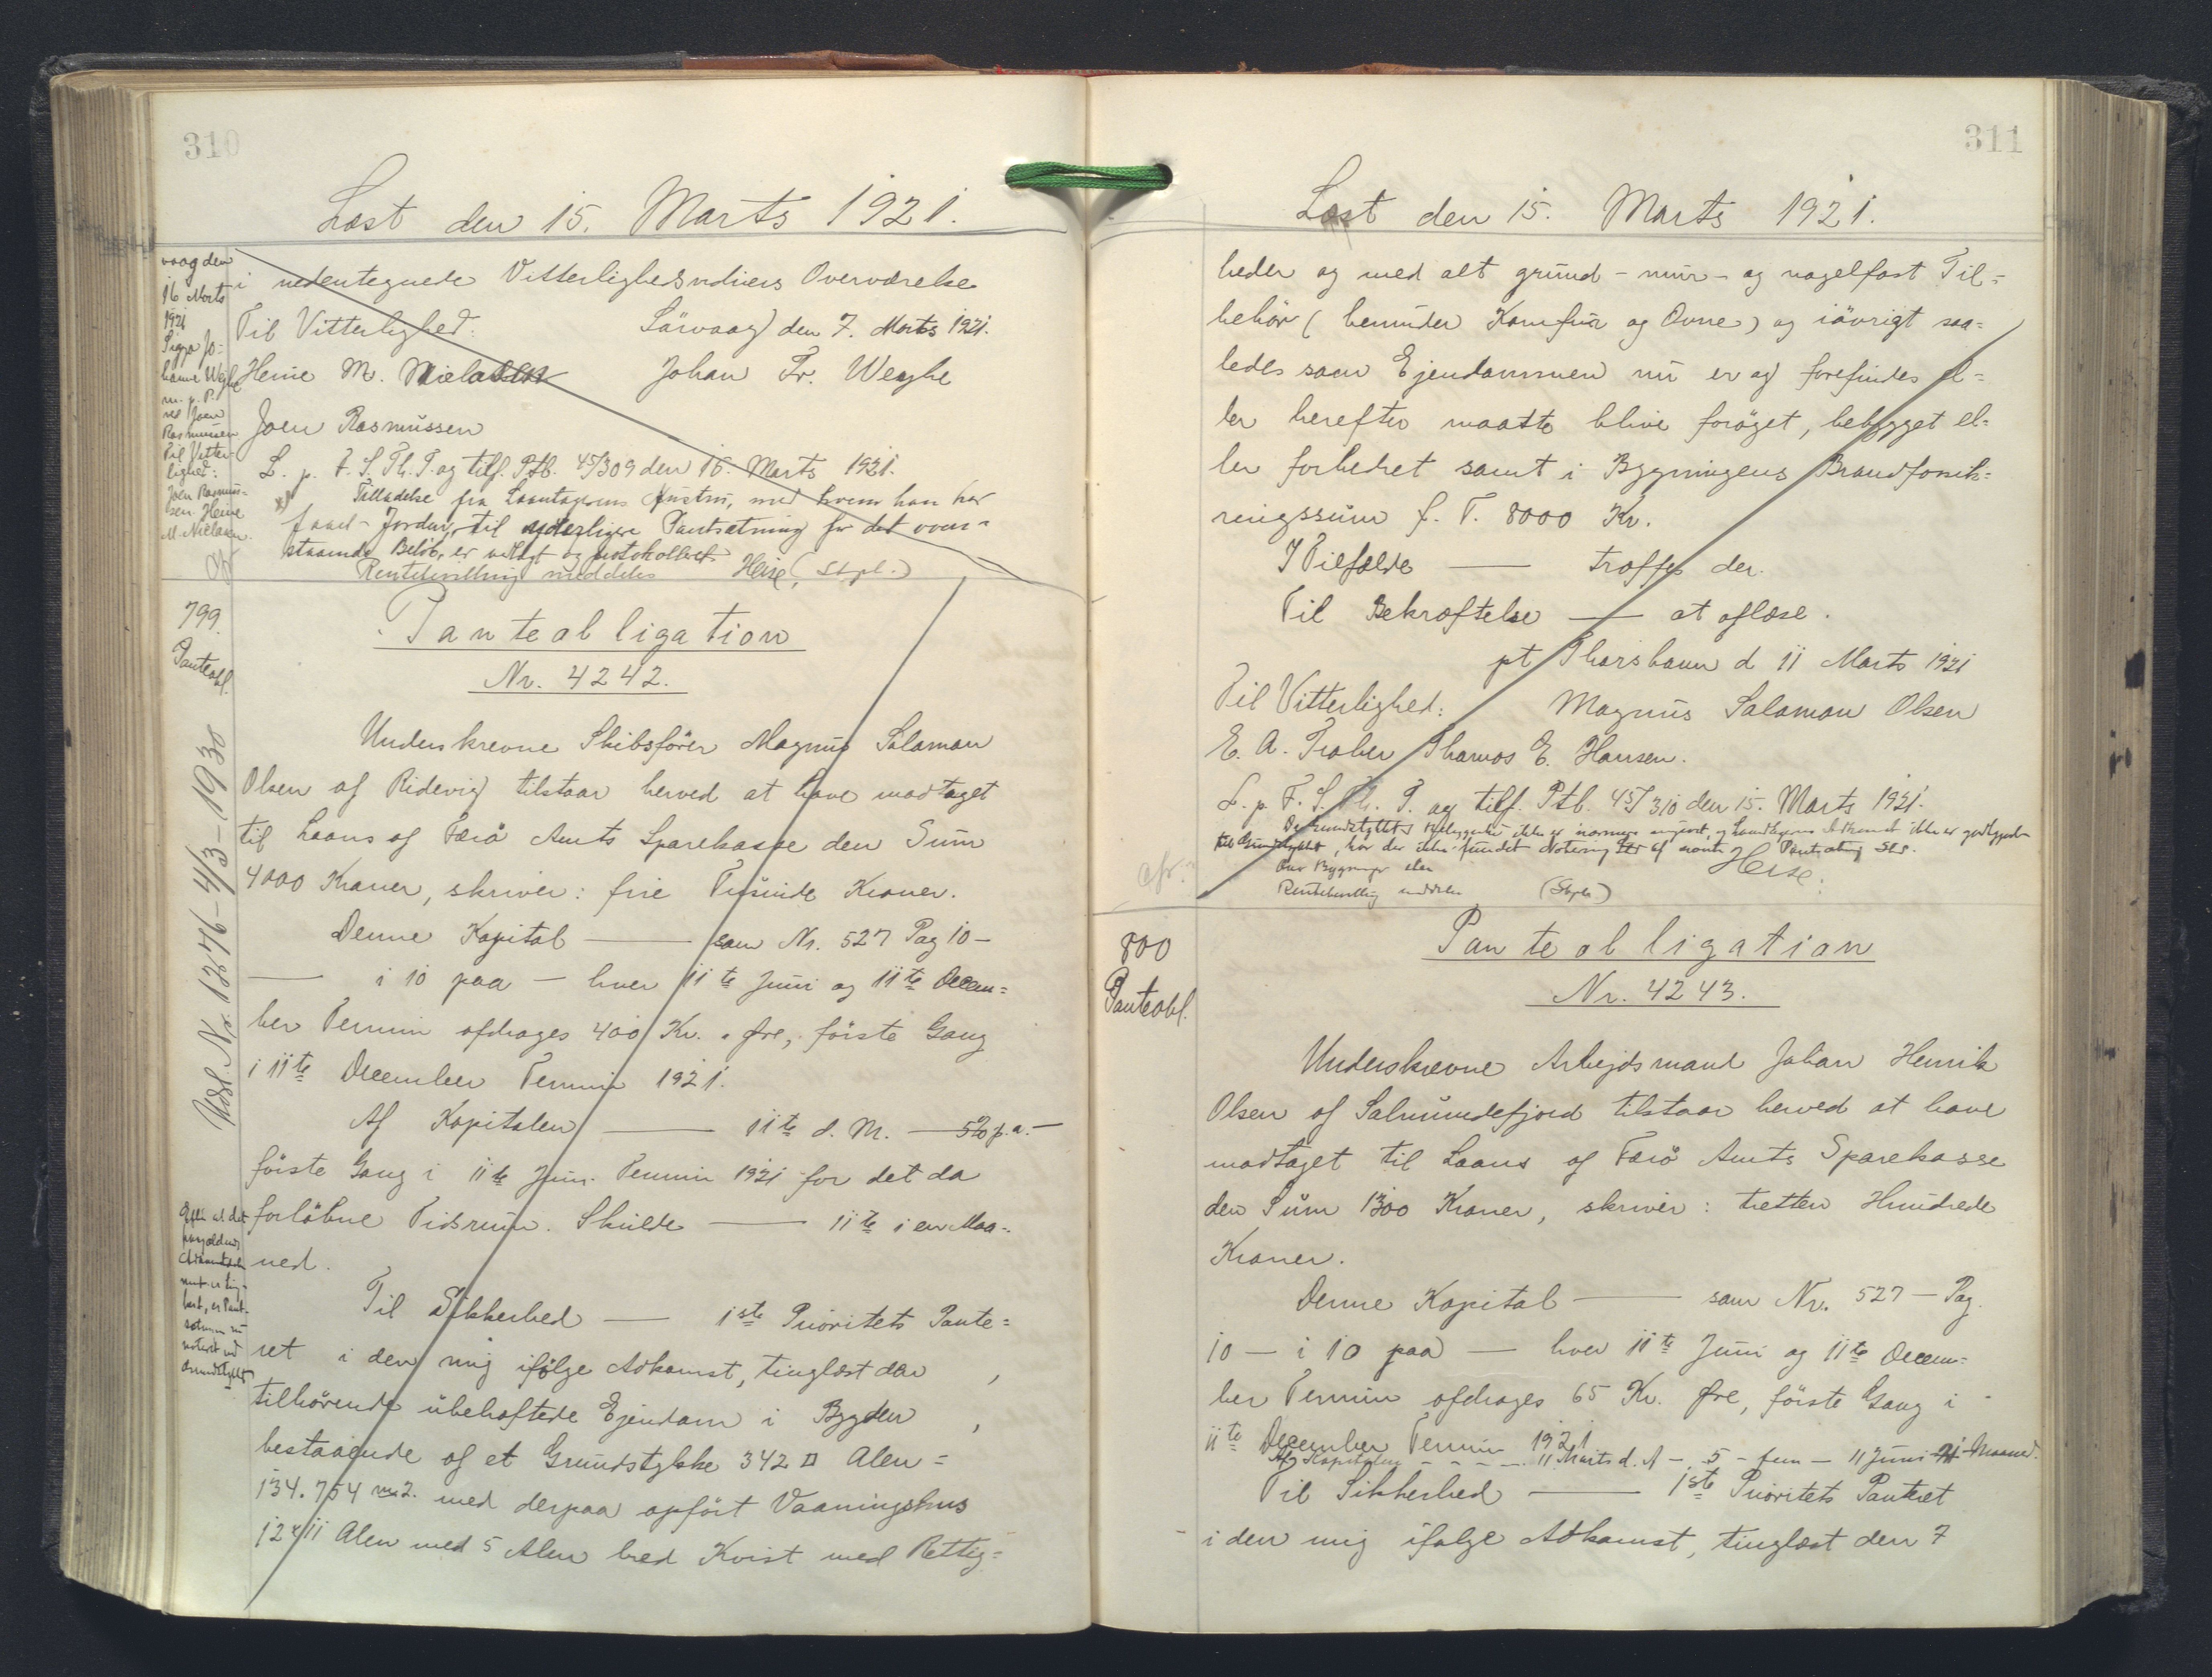 310
Læst den 15. Marts 1921.
vaag den
16 Marts
1921
Sigga Jo=
hanne Weyhe
m. p. P.
ved Joen
Rasmussen
Til Vitter-
lighed:
Joen Rasmus-
sen. Heine
M. Nielasen.
i nedentegnede Vitterlighedsvidners Overværelse
Til Vitterlighed: Sörvaag den 7. Marts 1921.
Heine M. Nielasen Johan Fr. Weyhe
Joen Rasmussen
L. p. F. S. Th. T. og tilf. Ptb. 45/309 den 15. Marts 1921.
Tilladelse fra Laantagerens Hustru, med hvem han har
faaet Jorden, til yderligere Pantsætning for det oven=
staaende Beløb, er vedlagt og protokolleret.
Rentebevilling meddeles Heise (Stpl.)
799.
Panteobl.
Panteobligation
Nr. 4242.
Udsl. Nr. 1276-4/3-1930
Underskrevne Skibsfører Magnus Salamon
Olsen af Ridevig tilstaar herved at have modtaget
til Laans af Færö Amts Sparekasse den Sum
4000 Kroner, skriver: fire Tusinde Kroner.
Denne Kapital — som Nr. 527 Pag 10 —
— i 10 paa — hver 11te Juni og 11te Decem=
ber Termin afdrages 400 Kr. " Øre, förste Gang
i 11te December Termin 1921.
Af Kapitalen — 11te d. M. — 5% p. a. —
förste Gang i 11te Juni Termin 1921 for det da
forlöbne Tidsrum. Skulde — 11te i en Maa=
ned.
Efter at det
paagældende
Adkomstdoku
ment er ting-
læst, er Pant-
sætningen nu
noteret ved
Grundstykket
Til Sikkerhed — 1ste Prioritets Pante=
ret i den mig ifølge Adkomst, tinglæst den ,
tilhörende ubehæftede Ejendom i Bygden ,
bestaaende af et Grundstykke 342 □ Alen =
134.754 m2. med derpaa opfört Vaaningshus
12 x 11 Alen med 5 Alen bred Kvist med Rettig=
311
Læst den 15. Marts 1921.
heder og med alt grund- mur- og nagelfast Til=
behör (herunder Komfur og Ovne) og iövrigt saa=
ledes som Ejendommen nu er og forefindes el=
ler herefter maatte blive foröget, bebygget el=
ler forbedret samt i Bygningens Brandforsik=
ringssum f. T. 8000 Kr.
I Tilfælde — træffes der.
Til Bekræftelse — at aflæse.
pt Thorshavn d 11 Marts 1921
Til Vitterlighed: Magnus Salamon Olsen
E. A. Trober Thomas E. Hansen.
L. p. F. S. Th. T. og tilf. Ptb. 45/310 den 15. Marts 1921.
Da Grundstykkets Beliggenhed ikke er nærmere angivet, og Laantagerens Adkomst ikke er godtgjort
til Grundstykket, har der ikke fundet Notering Sted af Pantsætning
Bygninger
Rentebevilling meddeles (Stpl.) Heise
cfr.
800
Panteobl.
Panteobligation
Nr. 4243.
Underskrevne Arbejdsmand Johan Henrik
Olsen af Salmundefjord tilstaar herved at have
modtaget til Laans af Færö Amts Sparekasse
den Sum 1300 Kroner, skriver: tretten Hundrede
Kroner.
Denne Kapital — som Nr. 527 — Pag.
10 — i 10 paa — hver 11te Juni og 11te Decem=
ber Termin afdrages 65 Kr. Øre, förste Gang i
11te December Termin 1921
Af Kapitalen - - - - 11 Marts d. A — 5 - fem — 11 Juni Maaned.
Til Sikkerhed — 1ste Prioritets Panteret
i den mig ifølge Adkomst, tinglæst den 7